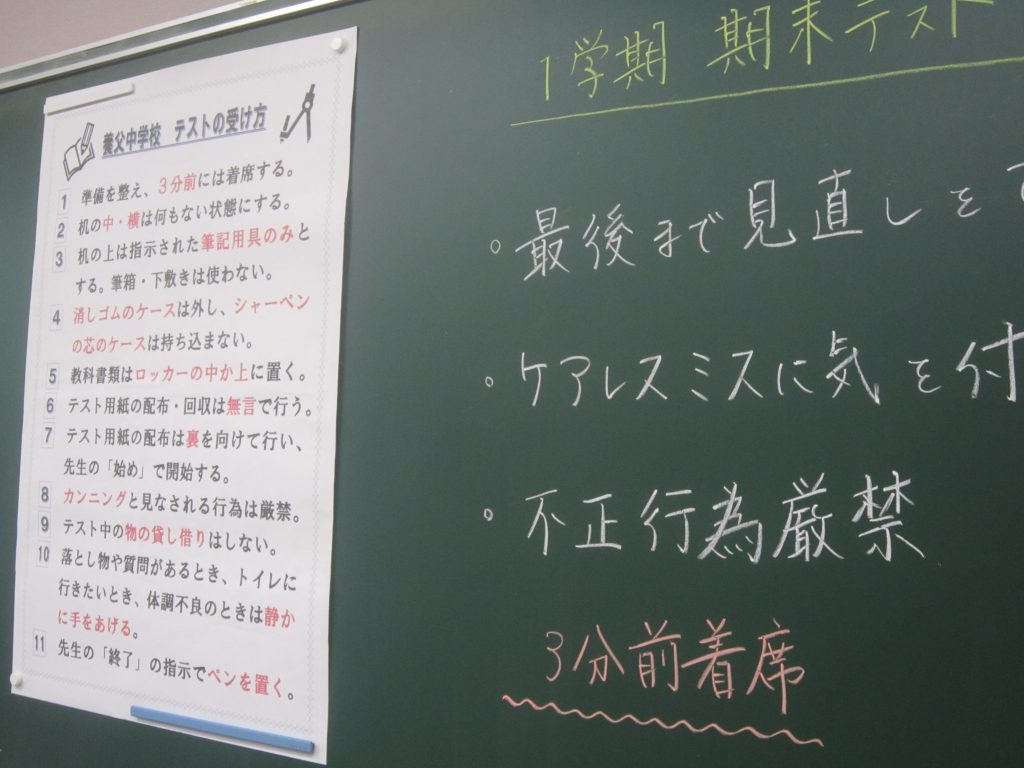 養父中学校 テストの受け方
1 準備を整え、3分前には着席する。
2 机の中・横は何もない状態にする。
3 机の上は指示された筆記用具のみと
する。筆箱・下敷きは使わない。
4 消しゴムのケースは外し、シャーペン
の芯のケースは持ち込まない。
5 教科書類はロッカーの中か上に置く。
6 テスト用紙の配布・回収は無言で行う。
7 テスト用紙の配布は裏を向けて行い、
先生の「始め」で開始する。
8 カンニングと見なされる行為は厳禁。
9 テスト中の物の貸し借りはしない。
10 落とし物や質問があるとき、トイレに
行きたいとき、体調不良のときは静か
に手をあげる。
11 先生の「終了」の指示でペンを置く。
1学期 期末テスト
。最後まで見直しを
。ケアレスミスに気を付
。不正行為厳禁
3分前着席